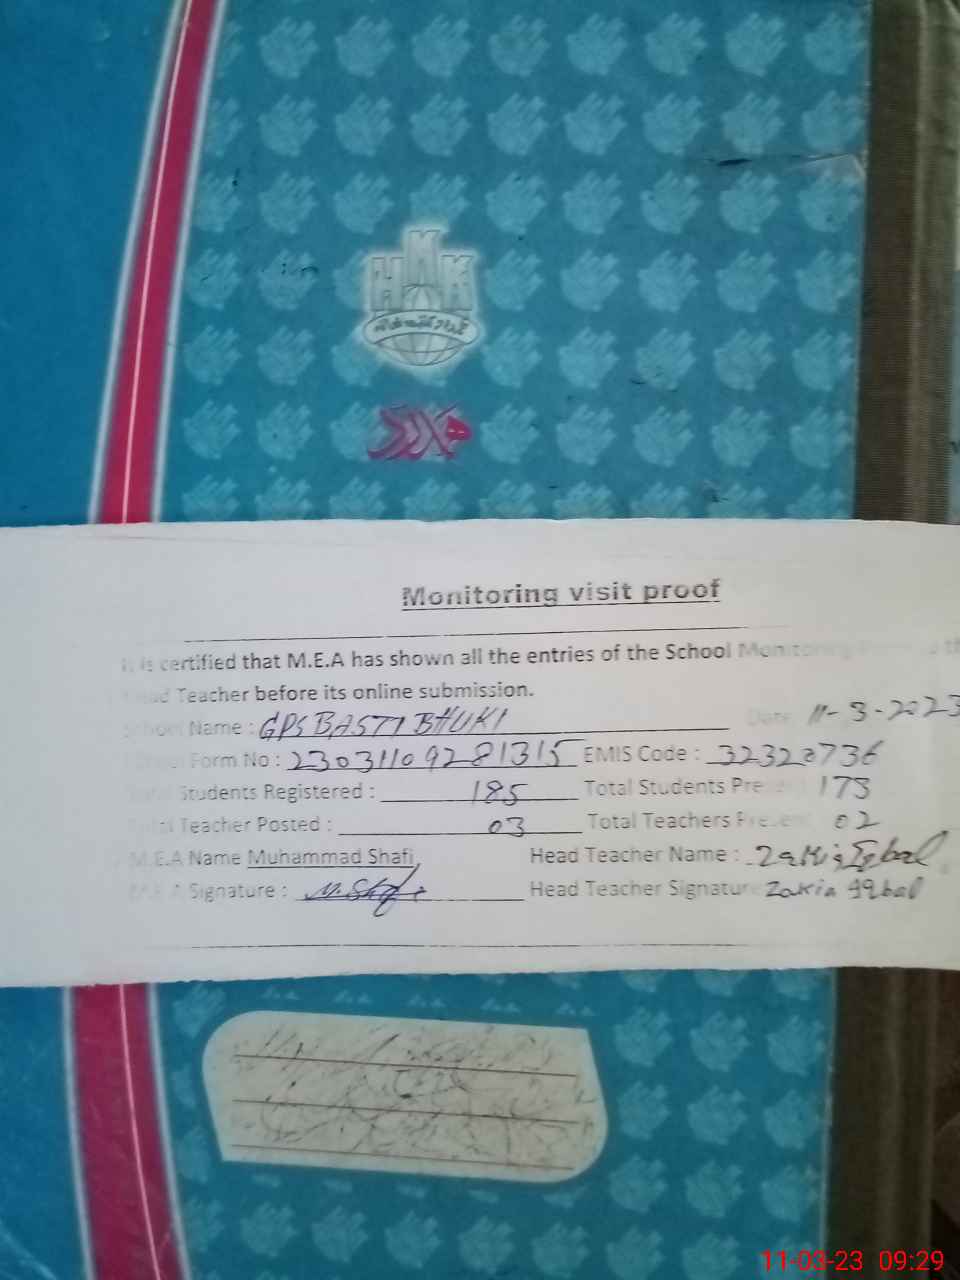 HMK
Monitoring visit proof
It is certified that M.E.A has shown all the entries of the School Monitoring
Head Teacher before its online submission.
School Name : GPS BASTI BHUKI Date 11-3-2023
School Form No : 23031109281315 EMIS Code : 32320736
Total Students Registered : 185 Total Students Present 173
Total Teacher Posted : 03 Total Teachers Present 02
M.E.A Name Muhammad Shafi Head Teacher Name : Zakia Iqbal
M.E.A Signature : M. Shafi Head Teacher Signature Zakia Iqbal
11-03-23 09:29